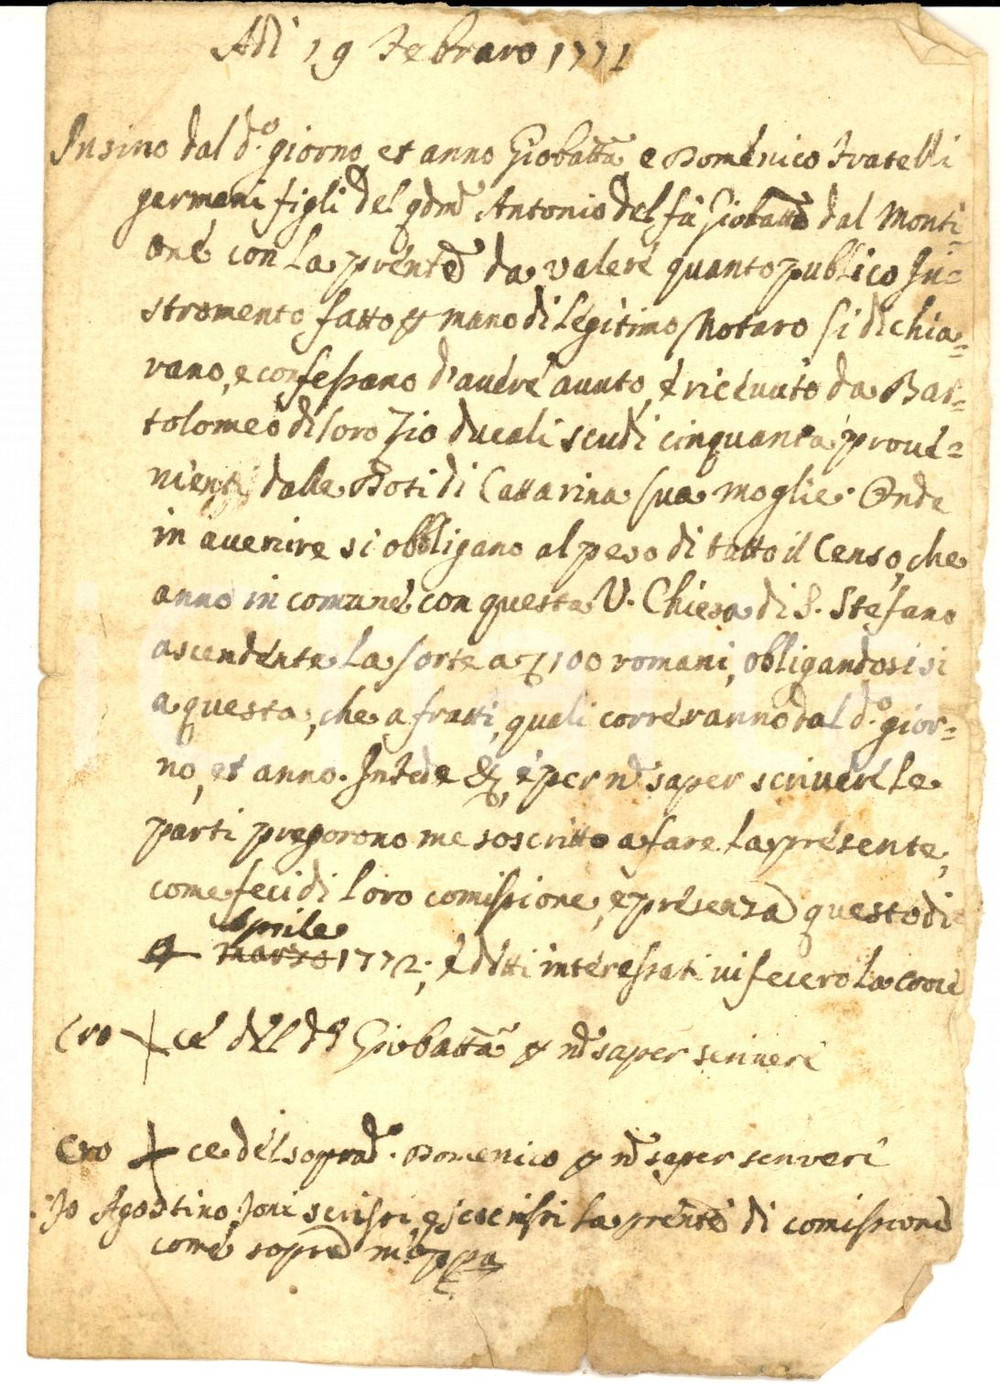 Adi 19 Febraro 1771
Insino dal d.o giorno et anno Giobatta e Domenico Fratelli
germani figli del qdm Antonio del fù Giobatta dal Monti-
one con la prēnte da valere quanto publico In=
stromento fatto p mano di legitimo Notaro si dichia=
rano, e confessano d'avere avuto, e ricevuto da Bar=
tolomeo di loro Zio ducali scudi cinquanta prove=
nienti dalle Doti di Cattarina sua moglie. Onde
in avenire si obbligano al peso di tutto il Censo, che
anno in comune con questa V. Chiesa di S. Stefano
ascendente la sorte a 100 romani, obligandosi si
a questa, che a frutti, quali correranno dal d.o gior=
no, et anno. In fede &, e per nō saper scrivere le
parti pregorono me soscritto a fare la presente,
come feci di loro comissione, e presenza questo di
Aprile
marzo 1772; e d.tti interessati vi fecero la croce
Cro + ce del d.o Giobatta p nō saper scrivere
Cro + ce del soprad. Domenico p nō saper scrivere
Io Agostino scrissi, e soscrissi la prēnte di comissione
come sopra